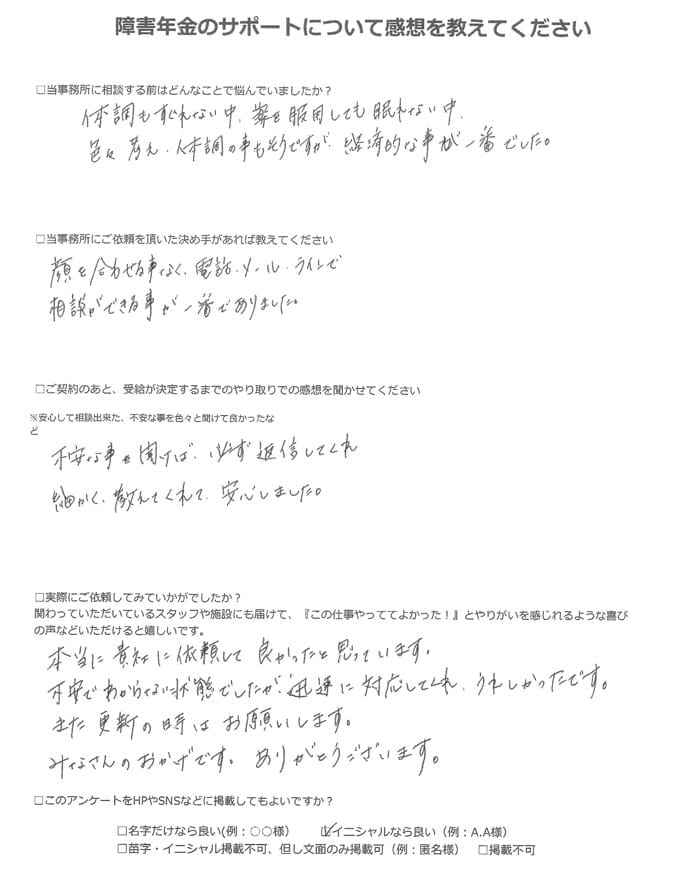 障害年金のサポートについて感想を教えてください
□当事務所に相談する前はどんなことで悩んでいましたか？
体調もすぐれない中、薬を服用しても眠れない中、
色々考え、体調の事もそうですが、経済的な事が一番でした。
□当事務所にご依頼を頂いた決め手があれば教えてください
顔を合わせる事なく、電話・メール・ラインで
相談ができる事が一番でありました。
□ご契約のあと、受給が決定するまでのやり取りでの感想を聞かせてください
※安心して相談出来た、不安な事を色々と聞けて良かったな
ど
不安な事を聞けば、必ず返信してくれ
細かく、教えてくれて、安心しました。
□実際にご依頼してみていかがでしたか？
関わっていただいているスタッフや施設にも届けて、『この仕事やっててよかった！』とやりがいを感じれるような喜び
の声などいただけると嬉しいです。
本当に貴社に依頼して良かったと思っています。
不安でわからない状態でしたが、迅速に対応してくれ、うれしかったです。
また更新の時はお願いします。
みなさんのおかげです。ありがとうございます。
□このアンケートをHPやSNSなどに掲載してもよいですか？
□名字だけなら良い(例：○○様）　☑イニシャルなら良い（例：A.A様）
□苗字・イニシャル掲載不可、但し文面のみ掲載可（例：匿名様）　□掲載不可